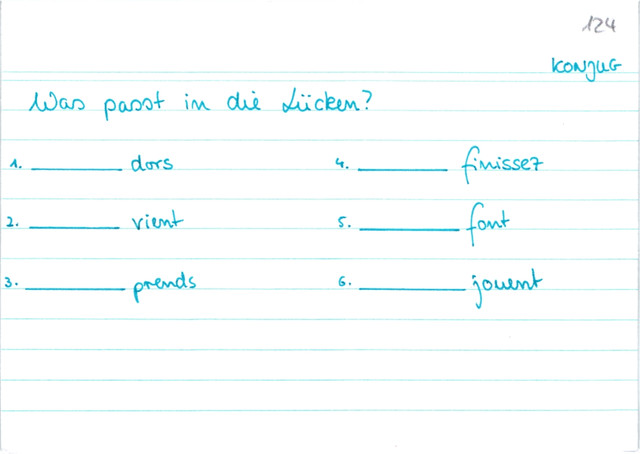 124
KONJUG
Was passt in die Lücken?
1. ________ dors
4. ________ finissez
2. ________ vient
5. ________ font
3. ________ prends
6. ________ jouent